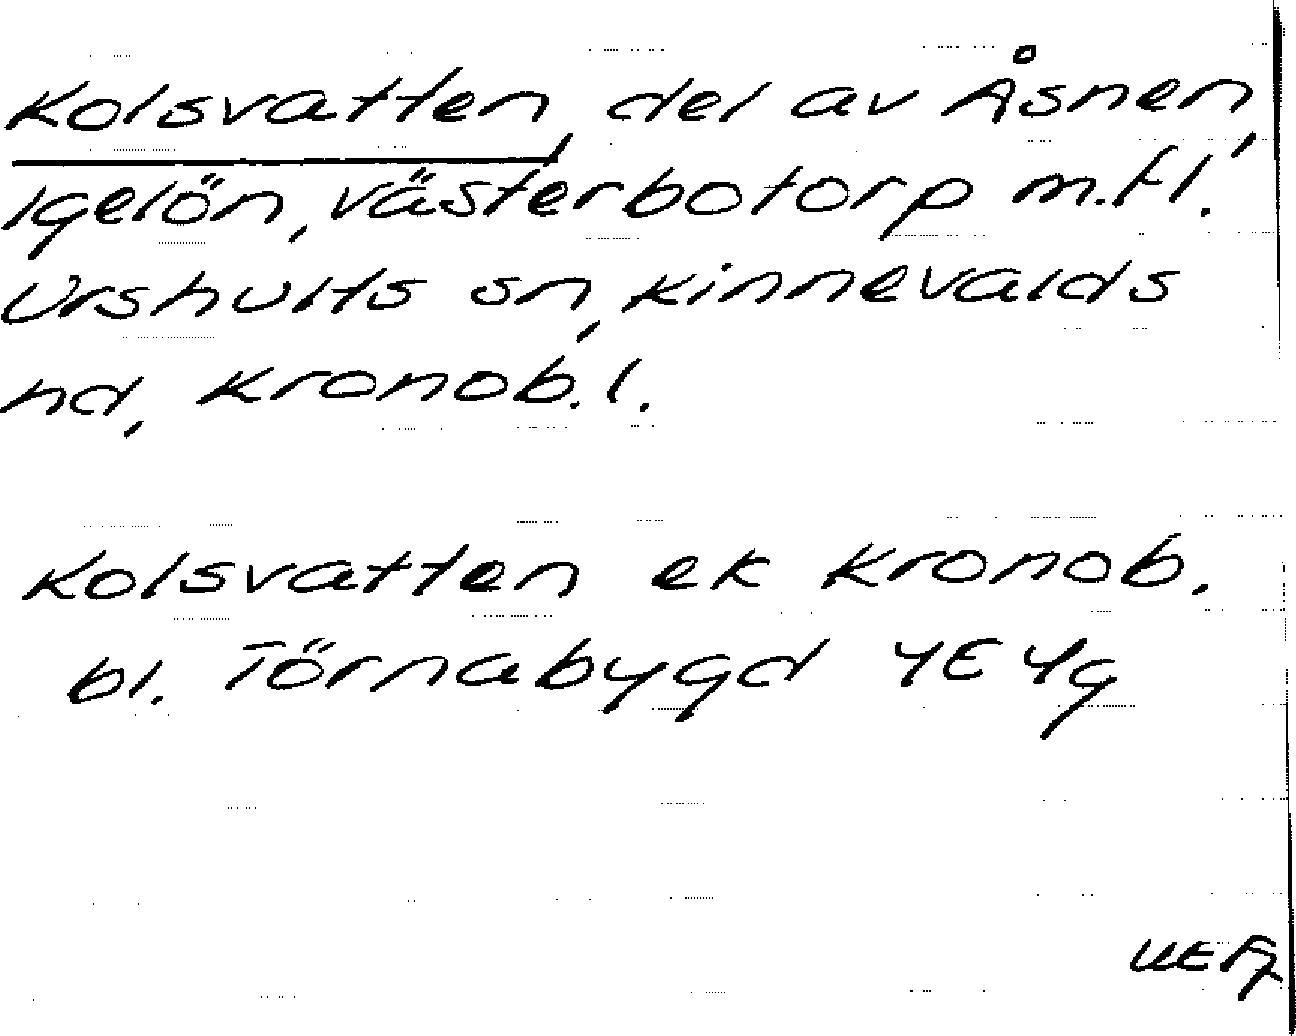 Kolsvatten, del av Åsnen,
Igelön, Västerbotorp m.fl.
Urshults sn, Kinnevalds
hd, Kronob. l.
Kolsvatten ek Kronob.
bl. Törnabygd 4E4g